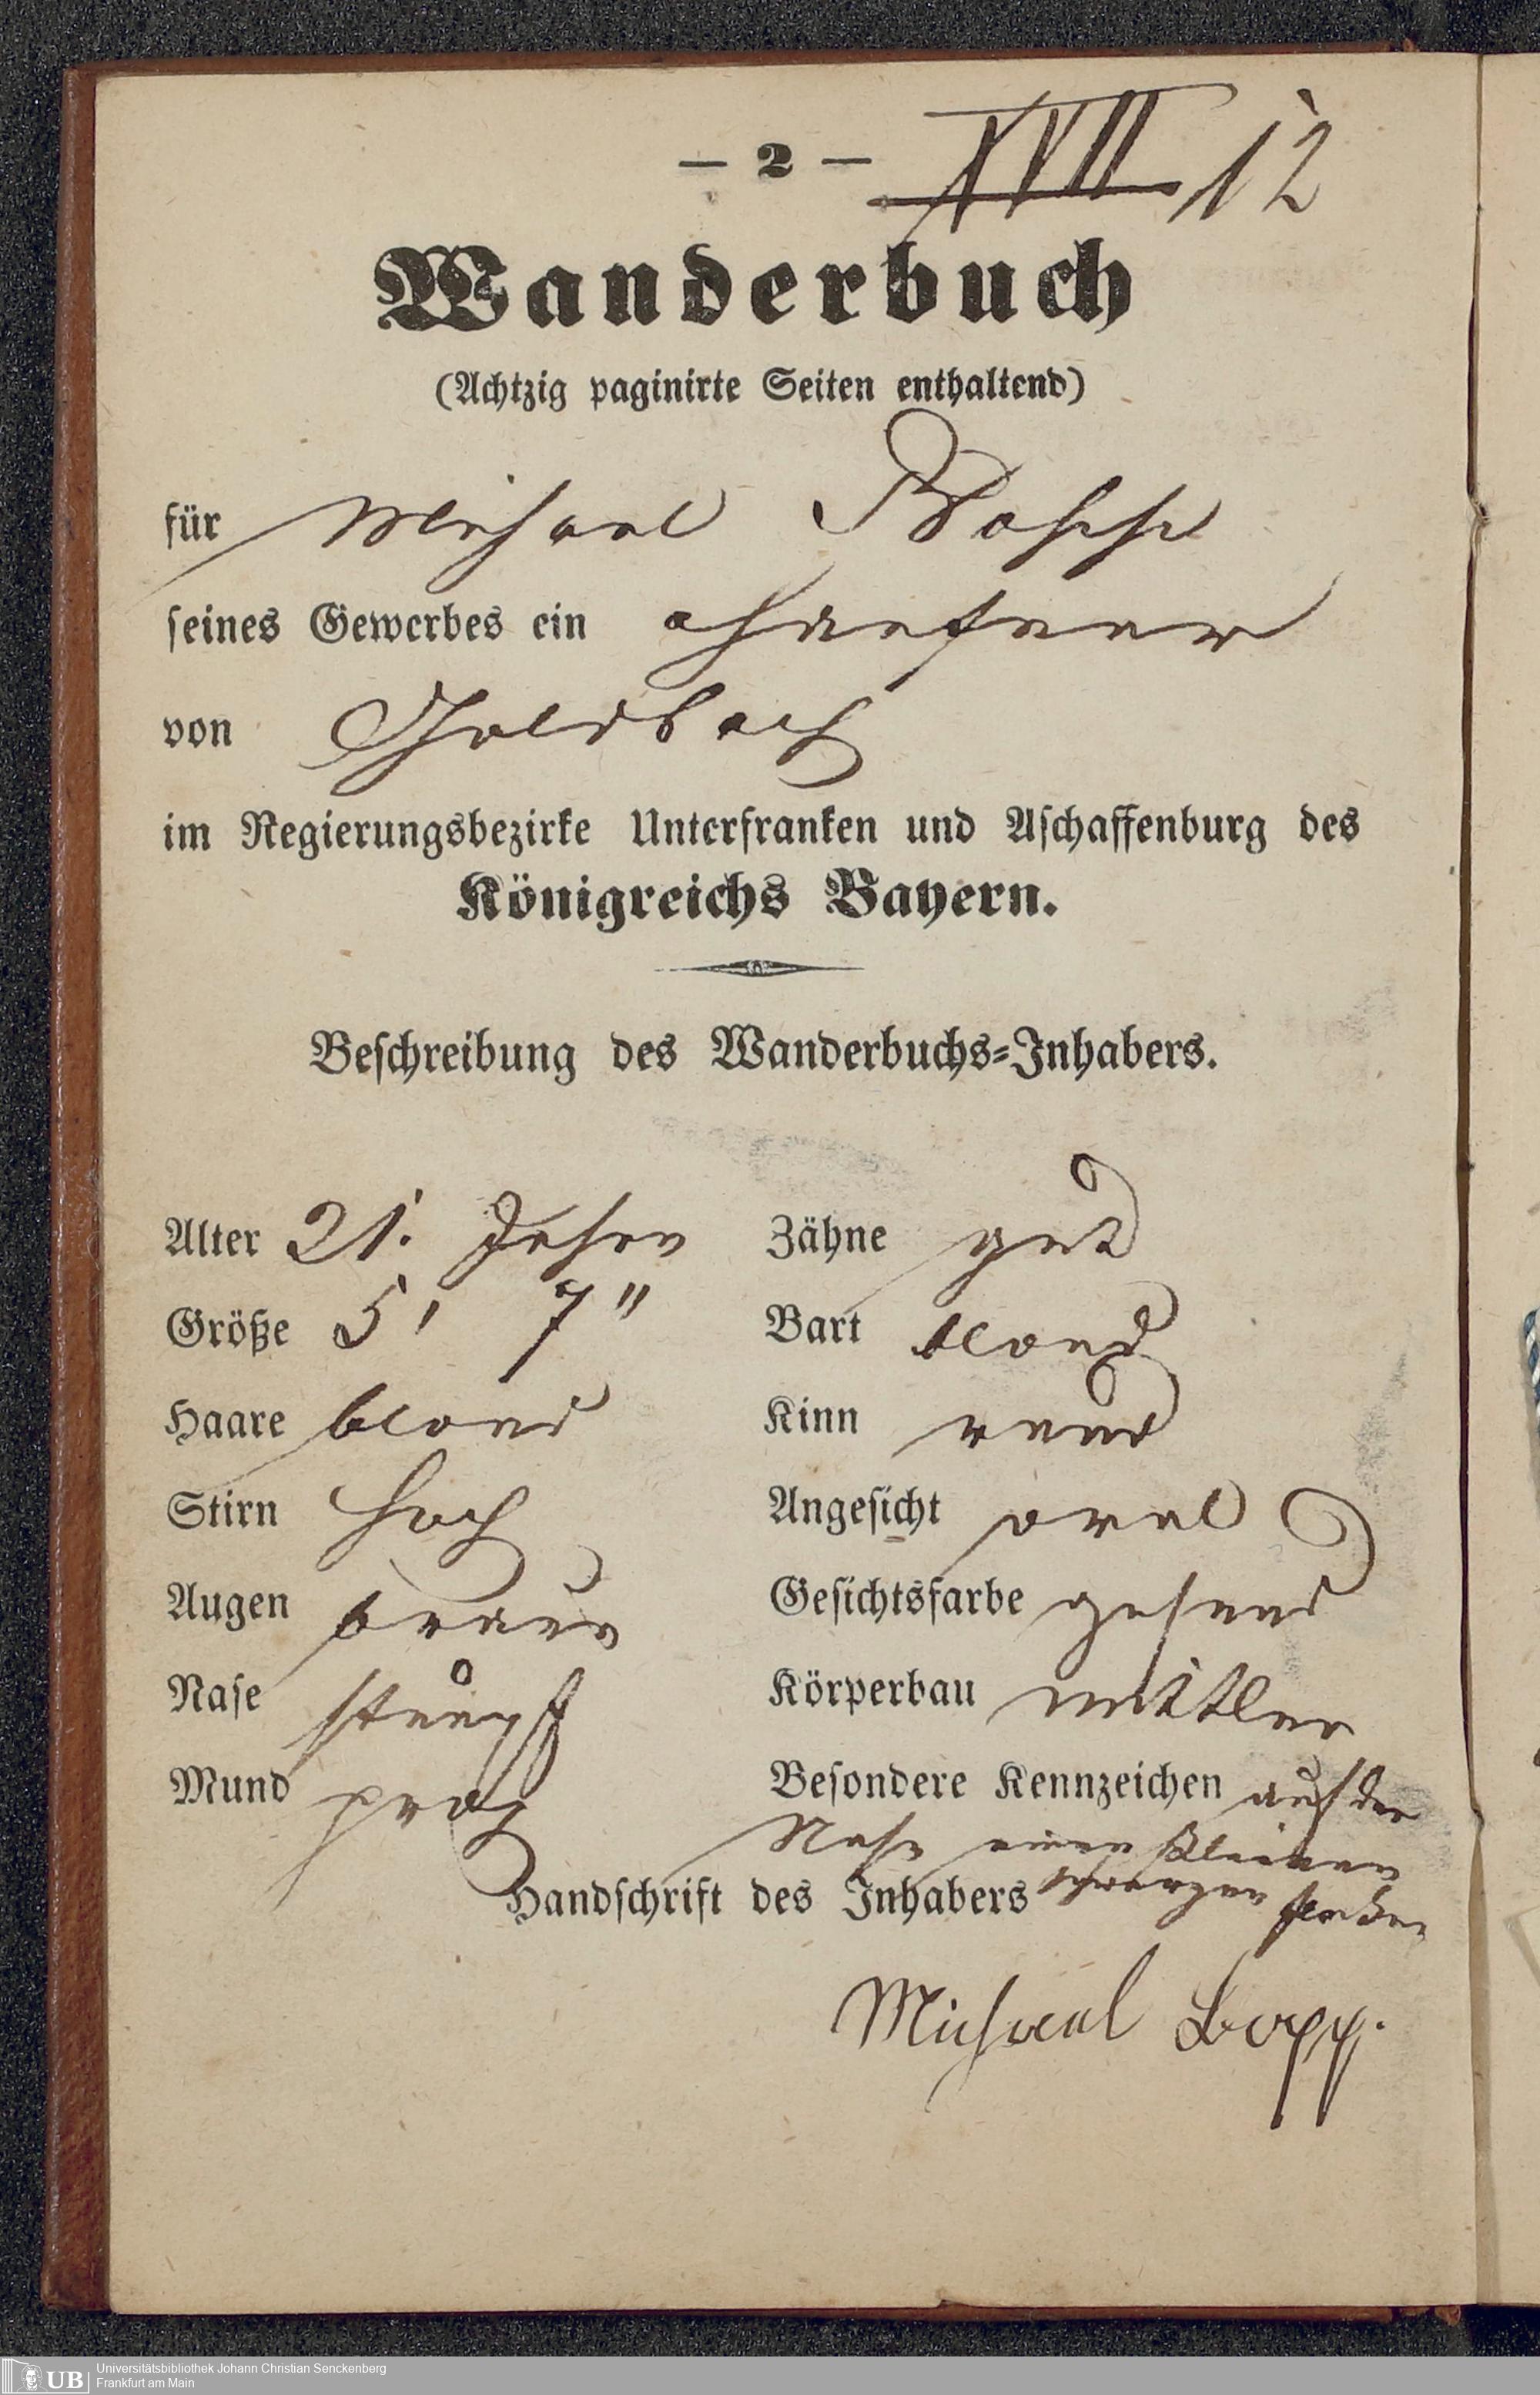 – 2 – XVII 12
Wanderbuch
(Achtzig paginirte Seiten enthaltend)
für Michael Bopp
seines Gewerbes ein
von Goldbach
im Regierungsbezirke Unterfranken und Aschaffenburg des
Königreichs Bayern.
Beschreibung des Wanderbuchs-Inhabers.
Alter 21. Jahre
Größe 5' 7"
Haare blond
Stirn hoch
Augen braun
Nase stumpf
Mund prop
Zähne gut
Bart blond
Kinn rund
Angesicht oval
Gesichtsfarbe gesund
Körperbau mittler
Besondere Kennzeichen auf der
Nase einen kleinen
schwarzen Flecken
Handschrift des Inhabers
Michael Bopp.
UB Universitätsbibliothek Johann Christian Senckenberg
Frankfurt am Main